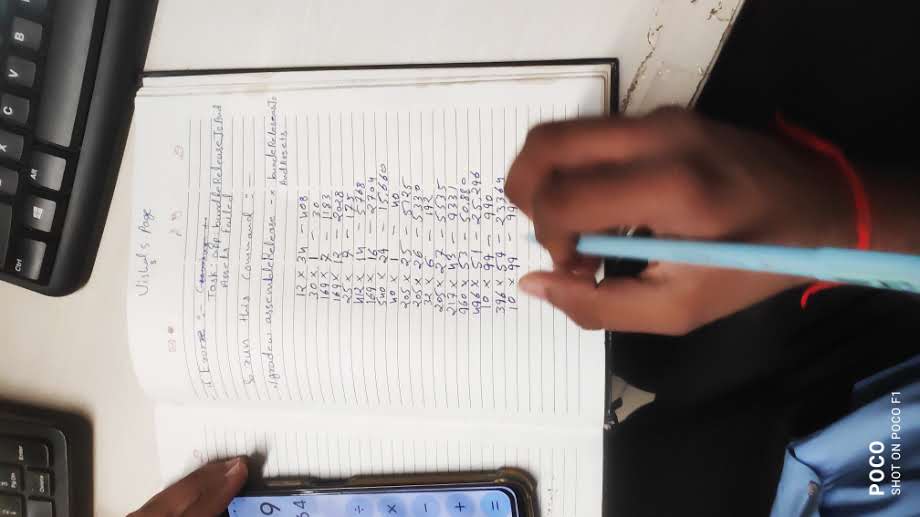 Vishal's Page
if Error :-
Task : app:bundleReleaseJsAnd
Assets Failed
So run this Command : -
./gradlew assembleRelease -x bundleReleaseJs
AndAssets
12 × 34 - 408
30 × 1 - 30
169 × 7 - 1183
169 × 12 - 2028
25 × 7 - 175
412 × 14 - 5768
169 × 16 - 2704
540 × 29 - 15,660
40 × 1 - 40
205 × 25 - 5125
205 × 26 - 5330
32 × 6 - 192
205 × 27 - 5535
217 × 43 - 9331
960 × 53 - 50,880
496 × 51 - 25,296
10 × 99 - 990
396 × 59 - 23364
10 × 99 - 99
9
64
÷
×
−
+
=
Ctrl
Alt
X
C
V
B
3
PgDn
Enter
Delete
POCO
SHOT ON POCO F1